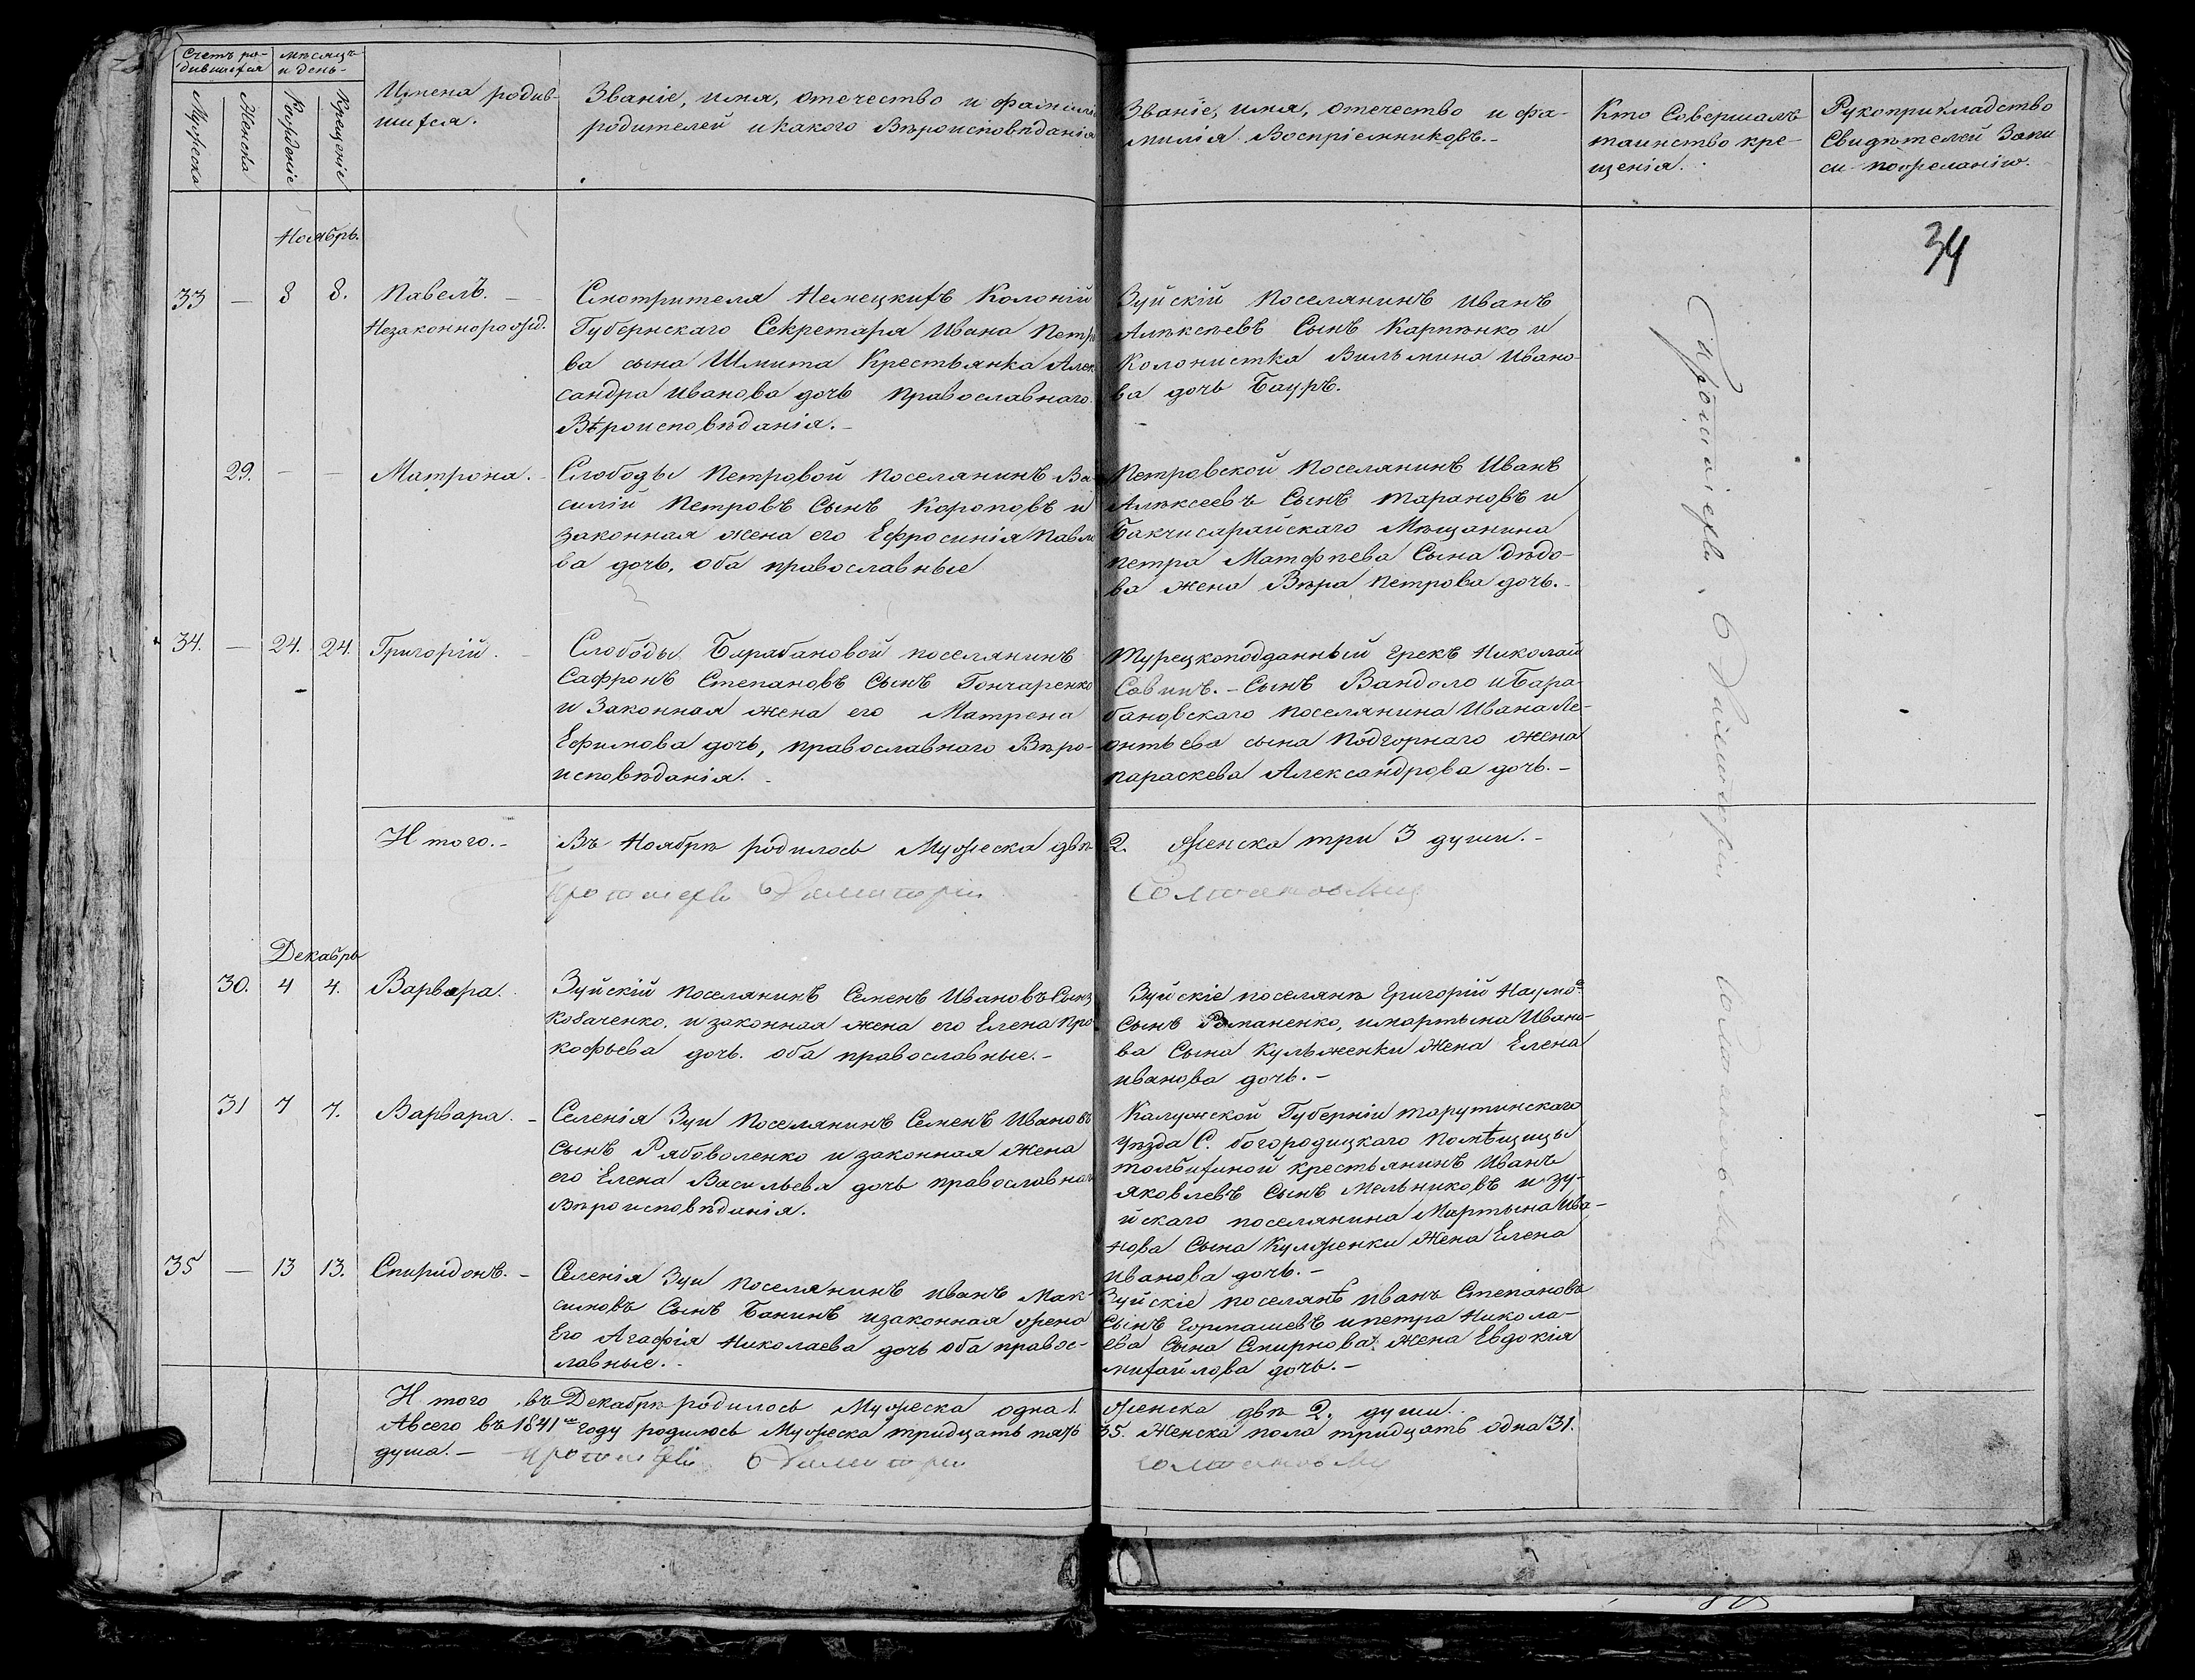 Счетъ ро-
дившихся
мѣсяцъ
и день-
Мужеска
Женска
Рожденіе
Крещеніе
Имена родив-
шихся.
Званіе, имя, отечество и фамилія
родителей и какого Вѣроисповѣданія
Званіе, имя, отечество и фа-
милія Воспріемниковъ.-
Кто Совершалъ
таинство кре-
щенія.
Рукоприкладство
Свидѣтелей Запи
си по желанію.
34
Ноябрь.
33 — 8 8. Павелъ. —
Незаконнорожд.
Смотрителя Немецкихъ Колоній
Губернскаго Секретаря Ивана Петро
ва сына Шмита Крестьянка Алек
сандра Иванова дочь православнаго
Вѣроисповѣданія.-
Зуйскій поселянинъ Иванъ
Алѣксѣевъ Сынъ Карпѣнко и
Колонистка Вильмина Ивано-
ва дочь Бауръ.
29. — — Матрона.-
Слободы Петровой поселянинъ Ва-
силій Петровъ Сынъ Короповъ и
законная жена его Ефросинія Павло
ва дочь, оба православные
Петровской поселянинъ Иванъ
Алѣксеевъ Сынъ Тарановъ и
Бакчисарайскаго Мѣщанина
петра Матфѣева Сына Дѣдо-
ва жена Вѣра Петрова дочь.-
34. — 24. 24. Григорій.
Слободы Барабановой поселянинъ
Сафронъ Степановъ Сынъ Гончаренко
и Законная жена его Матрена
Ефимова дочь, православнаго Вѣро-
исповѣданія.-
Турецкоподданный грекъ Николай
Саввинъ.- Сынъ Вандоло и Бара-
бановскаго поселянина Ивана Ле-
онтьева сына Подгорнаго жена
параскева Александрова дочь.-
Итого.- Въ Ноябрѣ родилось Мужеска двѣ 2. Женска три 3 души.-
Протоіерей Димитрій
Декабрь
30. 4 4. Варвара.
Зуйскій поселянинъ Семенъ Ивановъ Сынъ
Коваченко, и законная жена его Елена Про-
кофьева дочь. оба православные.-
Зуйскіе поселянѣ Григорій Наумов
Сынъ Романенко, и мартына Ивано-
ва Сына Кульженки жена Елена
иванова дочь.-
31 7 7. Варвара.-
Селенія Зуи поселянинъ Семенъ Ивановъ
сынъ Рябоволенко и законная жена
его Елена Васильева дочь православнаго
Вѣроисповѣданія.
Калужской Губерніи тарутинскаго
уѣзда С. богородицкаго помѣщицы
крестьянинъ Иванъ
яковлевъ Сынъ Мельниковъ и зу-
йскаго поселянина Мартына Ива-
нова Сына Кулженки жена Елена
иванова дочь.-
35 — 13 13. Спиридонъ.-
Селенія Зуи поселянинъ иванъ Мак-
симовъ Сынъ Банинъ и законная жена
Его Агафія Николаева дочь оба правос-
лавные.-
Зуйскіе поселянѣ иванъ Степановъ
Сынъ Горташевъ и петра Никола-
ева Сына Смирнова жена Евдокія
михайлова дочь.-
Итого въ Декабрѣ родилось Мужеска одна 1. Женска двѣ 2. души.
А всего въ 1841м году родилось Мужеска тридцать пять 35. Женска пола тридцать одна 31.
душа.- Протоіерей Димитрій
Протоіерей Димитрій